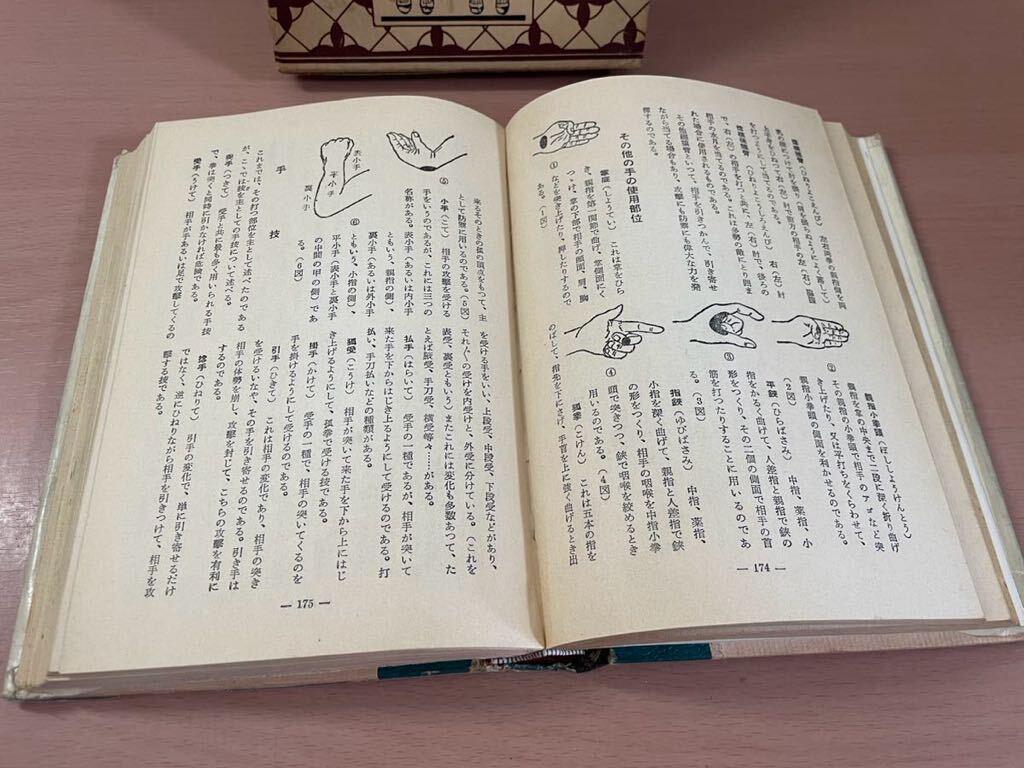 乳の線につけて肘を張り(肩を張らぬようによく落して)
右手拳をねじって右(左)肘で前方の相手の左(右)脇腹
を打つようにして当てるのである。
後猿臂(ひねりようしろえんぴ) 右(左)
で、右(左)の相手を打つと共に、左(右)肘で、後ろの
相手の水月を当てるのである。これは多勢の敵にとり囲ま
れた場合に使用されるものである。
その他廻猿臂といって、相手を引きつかんで、引き寄せ
ながら当てる場合もあり、攻撃にも防禦にも偉大な力を発
揮するのである。
その他の手の使用部位
①
掌底(しようてい) これは掌をひら
き、親指を第一関節で曲げ、掌側面にく
っつけ、掌の下部で相手の顔面、肩、胸
などを突き上げたり、押したりするので
ある。(1図)
親指小拳頭(ぼししょうけんとう)
親指を掌の中央まで二段に深く折り曲げ
その親指の小拳頭で相手のアゴなど突
き上げたり、又は平打ちをくらわせて、
親指小拳頭の側面を利かせるのである。
(2図)
②
③
④
平鋏(ひらばさみ) 中指、薬指、小
指をかるく曲げて、人差指と親指で鋏の
形をつくり、その二個の側面で相手の首
筋を打ったりすることに用いるのであ
る。(3図)
指鋏(ゆびばさみ) 中指、薬指、
小指を深く曲げて、親指と人差指で鋏
の形をつくり、相手の咽喉を中指小拳
頭で突きつつ、鋏で咽喉を絞めるとき
用いるのである。(4図)
孤拳(こけん) これは五本の指を
のばして、指先を下にさげ、手首を上に強く曲げるとき出
— 174 —
来るそのときの孤の頂点をもって、主
として防禦に用いるのである。(5図)
⑤
小手(こて) 相手の攻撃を受ける
手をいうのであるが、これには三つの
名称がある。表小手(あるいは内小手
ともいい、親指の側)、
裏小手(あるいは外小手
ともいう、小指の側)、
平小手(表小手と裏小手
の中間の甲の側)であ
る。(6図)
表小手
平小手
裏小手
⑥
手 技
これまでは、その打つ部位を主として述べたのである
が、こゝでは技を主としての手技について述べる。
突手(つきて) 受手と共に最も多く用いられる手技
で、拳は突くと同時に引かなければ危険である。
受手(うけて) 相手が手あるいは足で攻撃してくるの
を受ける手をいい、上段受、中段受、下段受などがあり、
それ〲の受けを内受けと、外受に分けている。(これを
表受、裏受ともいう)またこれには変化も多数あって、た
とえば脹受、手刀受、横受等々……がある。
払手(はらいて) 受手の一種であるが、相手が突いて
来た手を下からはじき上るようにして受けるのである。打
払い、手刀払いなどの種類がある。
孤受(こうけ) 相手が突いて来た手を下から上にはじ
き上げるようにして、孤拳で受ける技である。
掛手(かけて) 受手の一種で、相手の突いてくるのを
手を掛けるようにして受けるのである。
引手(ひきて) これは相手の変化であり、相手の突き
を受けるいなや、その手を引き寄せるのである。引き手は
相手の体勢を崩し、攻撃を封じて、こちらの攻撃を有利に
するのである。
捻手(ひねりて) 引手の変化で、単に引き寄せるだけ
ではなく、逆にひねりながら相手を引きつけて、相手を攻
撃する技である。
— 175 —